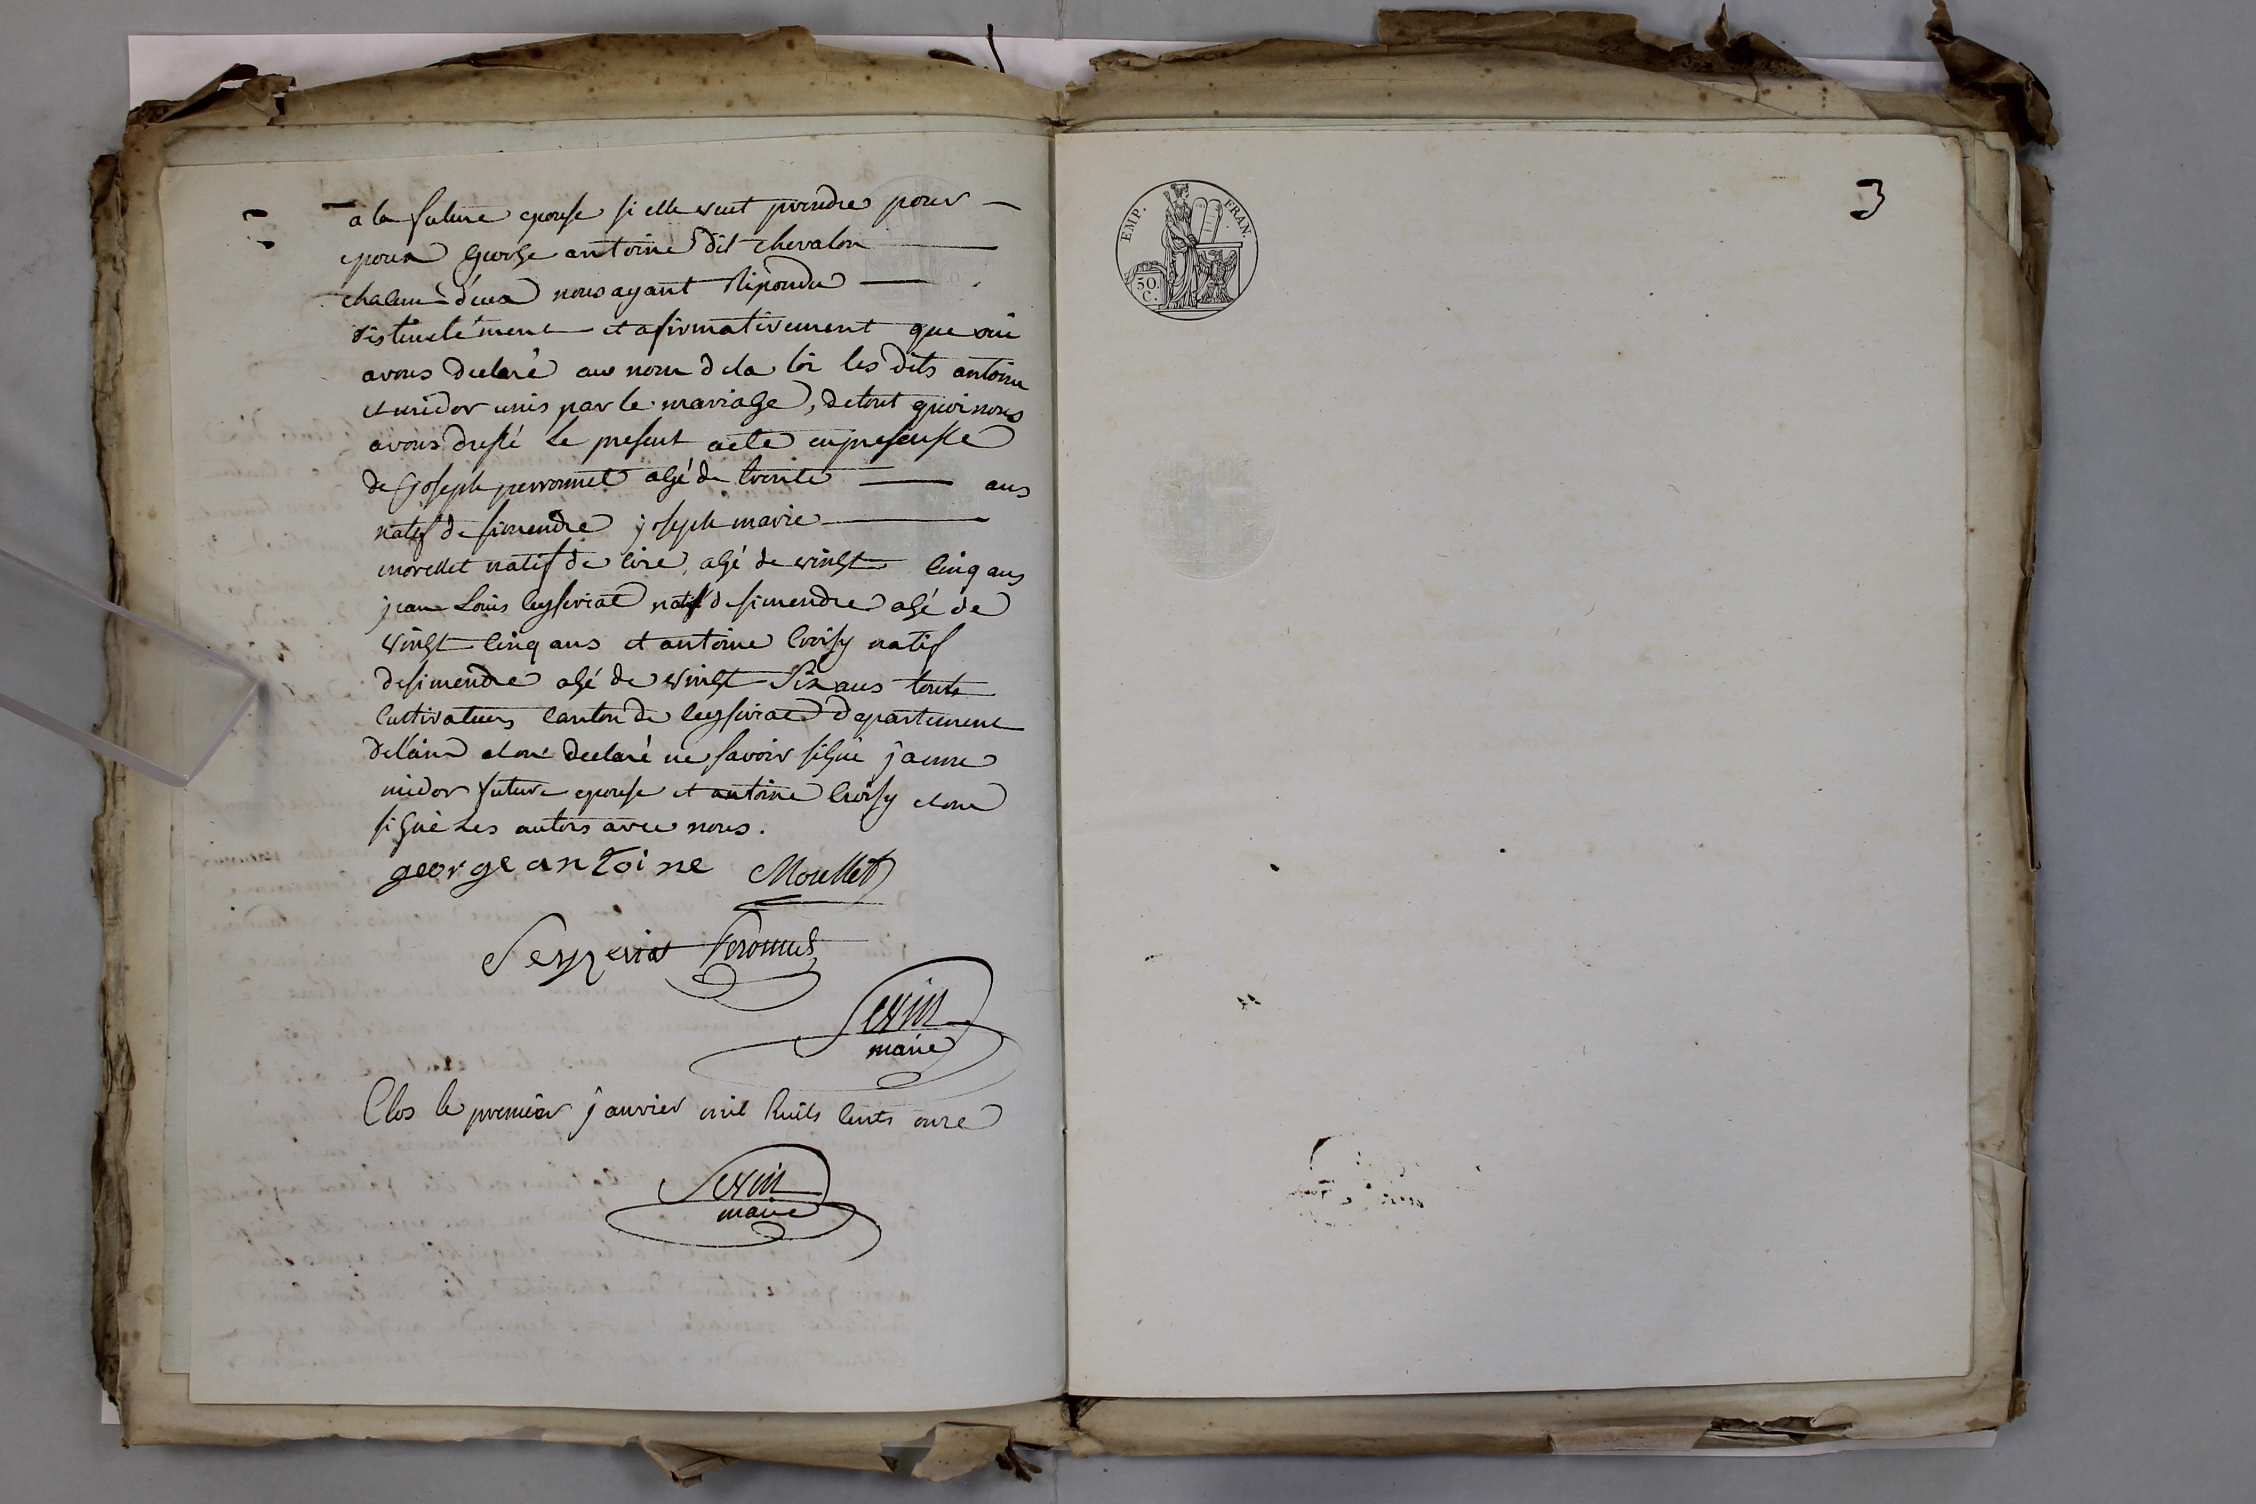 a la future epouse si elle veut prendre pour
epoux George antoine dit chevalon
chalun d'eux nous ayant Répondu
distinctément et afirmativement que oui
avons declaré au nom de la loi les dits antoine
et midor unis par le mariage, de tout quoi nous
avons dressé le present acte en presense
de Joseph perronnet agé de trente ans
natif de simendre joseph marie
morellet natif de cire, agé de vingt cinq ans
jean Louis leyseriat natif de simendre agé de
vingt cinq ans et antoine Croisy natif
de simendre agé de vingt Six ans touts
Cultivateurs canton de ceyseriat departement
de l'ain et ont declaré ne savoir signé jeanne
midor future epouse et antoine Croisy et ont
signé Les autors avec nous.
george antoine Morellet
Seyzeriat Peronnet
Servin
maire
Clos le premier janvier mil huits cents onze
Servin
maire
EMP. FRAN.
50.
C.
3